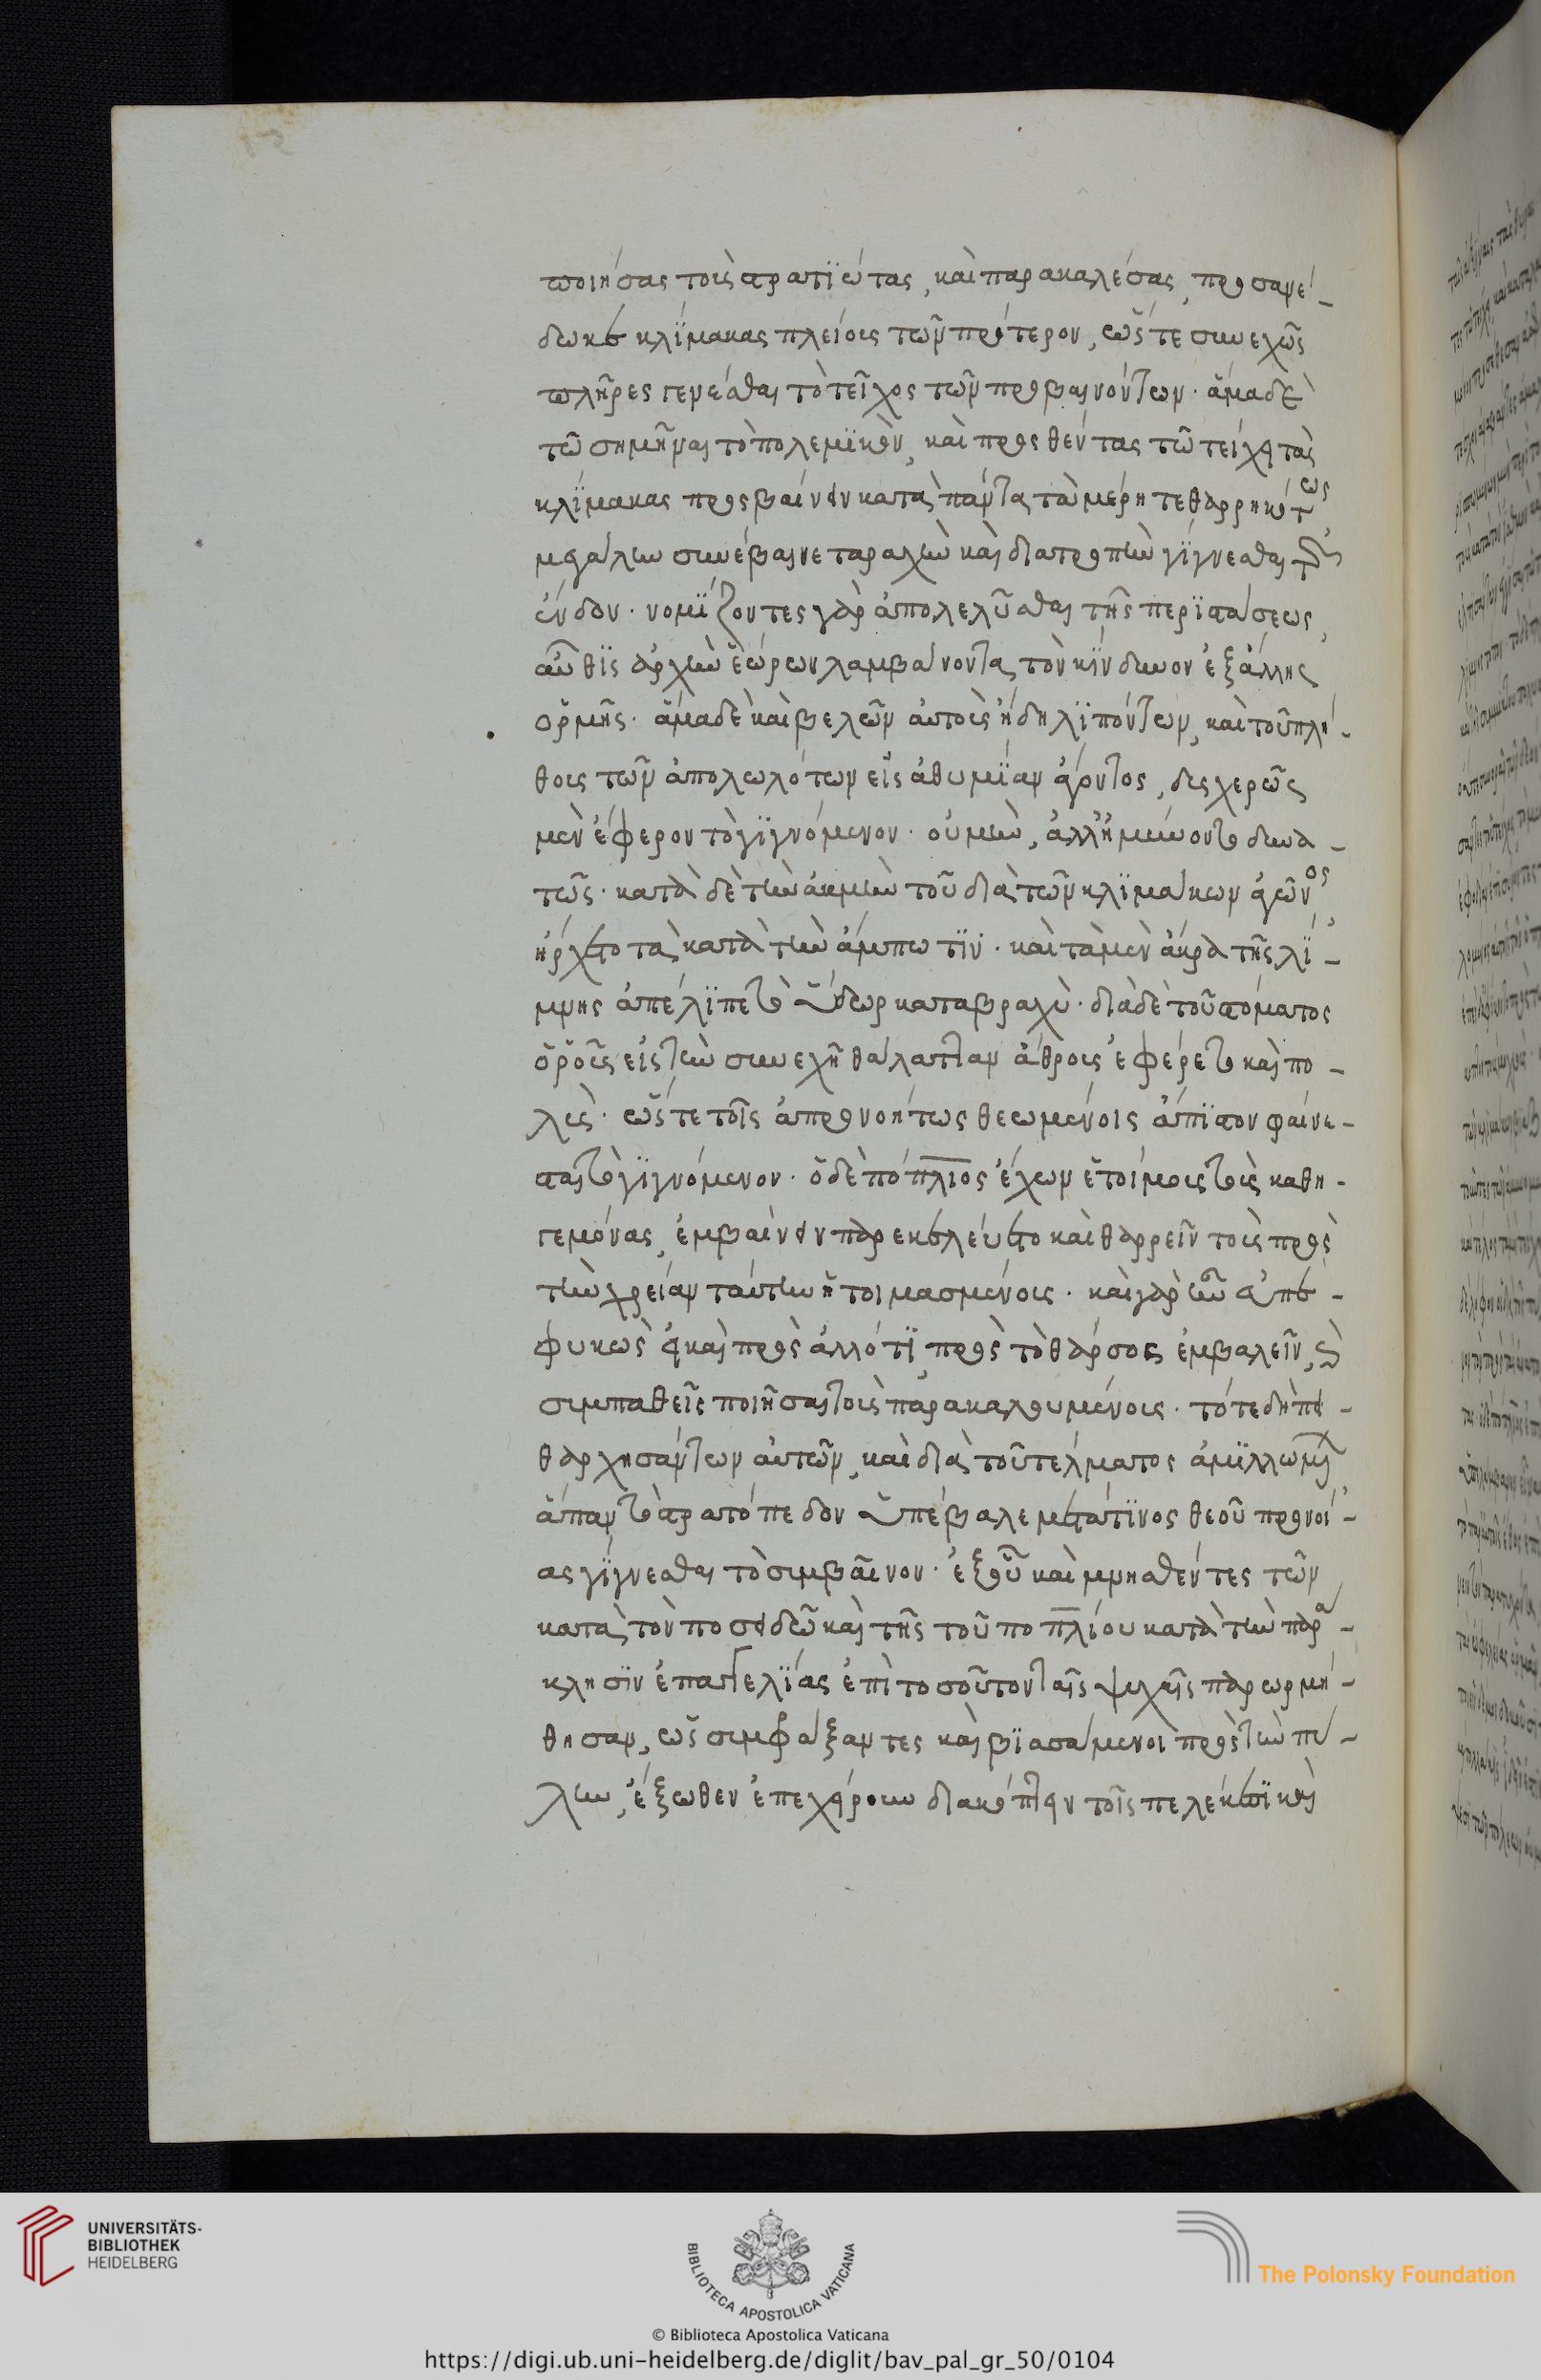 ποιήσας τοὺς στρατϊώτας, καὶ παρακαλέσας, προσανέ-
δωκε κλΐμακας πλείους τῶν πρότερον, ὥστε συνεχῶς
πλῆρες γενέσθαι τὸ τεῖχος τῶν προβαινόντων· ἅμα δὲ
τῶ σημῆναι τὸ πολεμϊκὸν, καὶ προσθέντας τῶ τείχει τὰς
κλΐμακας προσβαίνειν κατὰ πάντα τὰ μέρη τεθαρρηκότως
μεγάλην συνέβαινε ταραχὴν καὶ διατροπὴν γΐγνεσθαι τῶν
ἔνδον· νομΐζοντες γὰρ ἀπολελῦσθαι τῆς περϊστάσεως,
αὖθϊς ἀρχὴν ἑώρων λαμβάνοντα τὸν κΐνδυνον ἐξ ἄλλης
ὁρμῆς· ἅμα δὲ καὶ βελῶν αὐτοὺς ἤδη λϊπόντων, καὶ τοῦ πλή-
θους τῶν ἀπολωλότων εἰς ἀθυμΐαν ἄγοντος, δυσχερῶς
μὲν ἔφερον τὸ γϊγνόμενον· οὐ μὴν, ἀλλ' ἠμύνοντο δυνα-
τῶς· κατὰ δὲ τὴν ἀκμὴν τοῦ διὰ τῶν κλϊμάκων ἀγῶνος
ἤρχετο τὰ κατὰ τὴν ἄμπωτϊν· καὶ τὰ μὲν ἄκρα τῆς λΐ-
μνης ἀπέλϊπε τὸ ὕδωρ καταβραχὺ· διὰ δὲ τοῦ στόματος
ὁ ῥοῦς εἰς τὴν συνεχῆ θάλατταν ἄθρους ἐφέρετο καὶ πο-
λὺς· ὥστε τοῖς ἀπρονοήτως θεωμένοις ἄπϊστον φαίνε-
σθαι τὸ γϊγνόμενον· ὁ δὲ πόπλιος ἔχων ἑτοίμους τοὺς καθη-
γεμόνας, ἐμβαίνειν παρεκελεύετο καὶ θαρρεῖν τοὺς πρὸς
τὴν χρείαν ταύτην ἡτοιμασμένους· καὶ γὰρ ἦν εὖ πε-
φυκὼς εἰ καὶ πρὸς ἄλλό τϊ, πρὸς τὸ θάρσος ἐμβαλεῖν, καὶ
συμπαθεῖς ποιῆσαι τοὺς παρακαλουμένους· τότε δὴ πει-
θαρχησάντων αὐτῶν, καὶ διὰ τοῦ τέλματος ἁμϊλλωμένων
ἅπαν τὸ στρατόπεδον ὑπέβαλε μετά τϊνος θεοῦ προνοί-
ας γΐγνεσθαι τὸ συμβαῖνον· ἐξ οὗ καὶ μνησθέντες τῶν
κατὰ τὸν ποσειδῶ καὶ τῆς τοῦ ποπλίου κατὰ τὴν παρά-
κλησϊν ἐπαγγελΐας ἐπὶ τοσοῦτον ταῖς ψυχαῖς παρωρμή-
θησαν, ὡς συμφράξαντες καὶ βϊασάμενοι πρὸς τὴν πύ-
λην, ἔξωθεν ἐπεχείρουν διακόπτειν τοῖς πελέκεσϊ καὶ
UNIVERSITÄTS-
BIBLIOTHEK
HEIDELBERG
BIBLIOTECA APOSTOLICA VATICANA
The Polonsky Foundation
© Biblioteca Apostolica Vaticana
https://digi.ub.uni-heidelberg.de/diglit/bav_pal_gr_50/0104